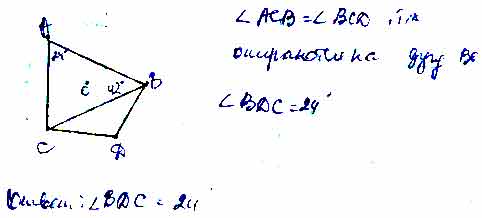 A
24°
42°
B
C
D
∠ACB = ∠BCD, т.к
опираются на дугу BC
∠BDC = 24°
Ответ: ∠BDC = 24